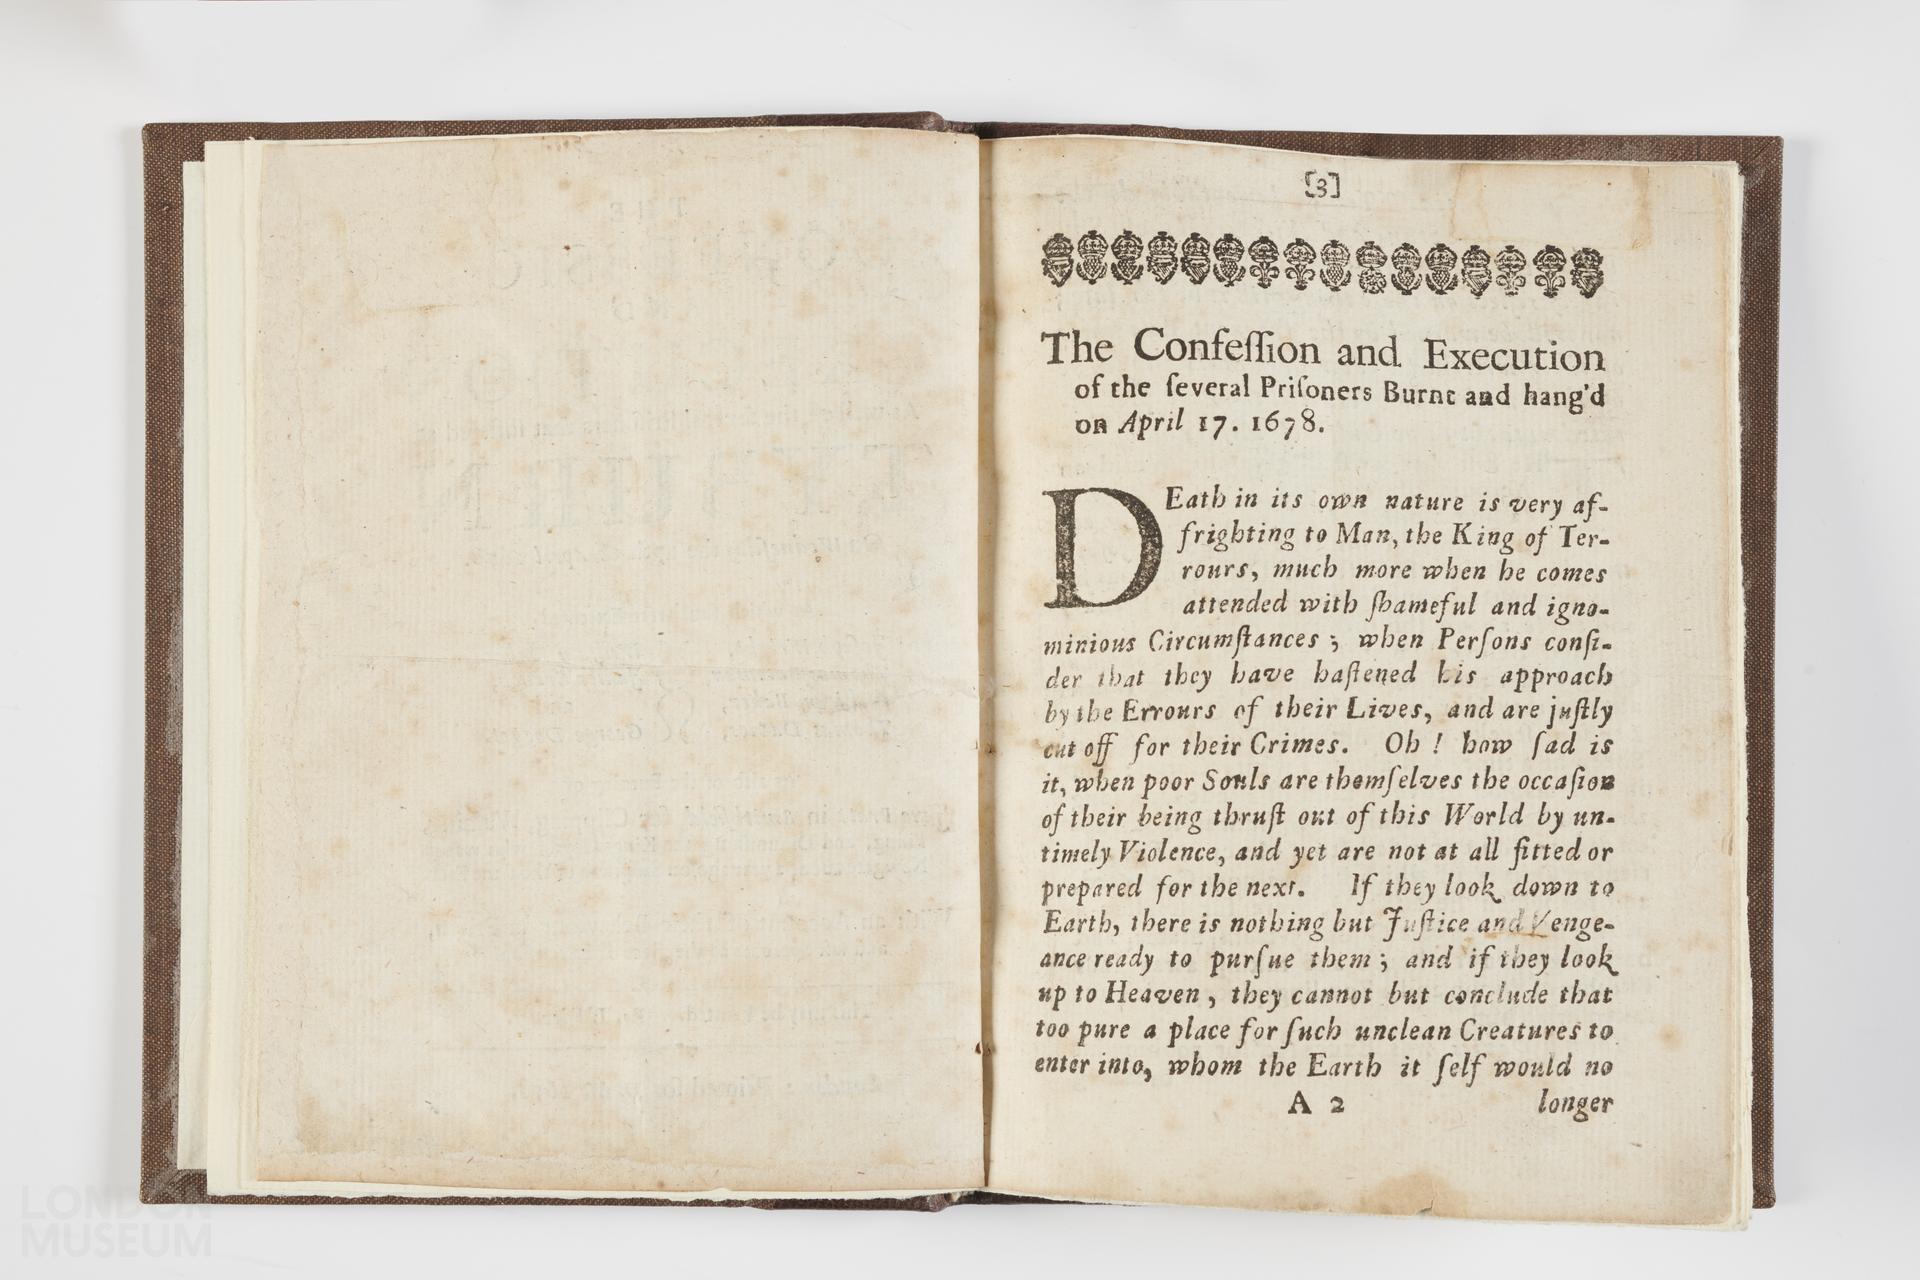 [3]
The Confeſſion and Execution
of the ſeveral Priſoners Burnt and hang'd
on April 17. 1678.
DEath in its own nature is very af-
frighting to Man, the King of Ter-
rours, much more when he comes
attended with ſhameful and igno-
minious Circumſtances; when Perſons conſi-
der that they have haſtened his approach
by the Errours of their Lives, and are juſtly
cut off for their Crimes. Oh! how ſad is
it, when poor Souls are themſelves the occaſion
of their being thruſt out of this World by un-
timely Violence, and yet are not at all fitted or
prepared for the next. If they look down to
Earth, there is nothing but Juſtice and Venge-
ance ready to purſue them; and if they look
up to Heaven, they cannot but conclude that
too pure a place for ſuch unclean Creatures to
enter into, whom the Earth it ſelf would no
A 2 longer
LONDON
MUSEUM